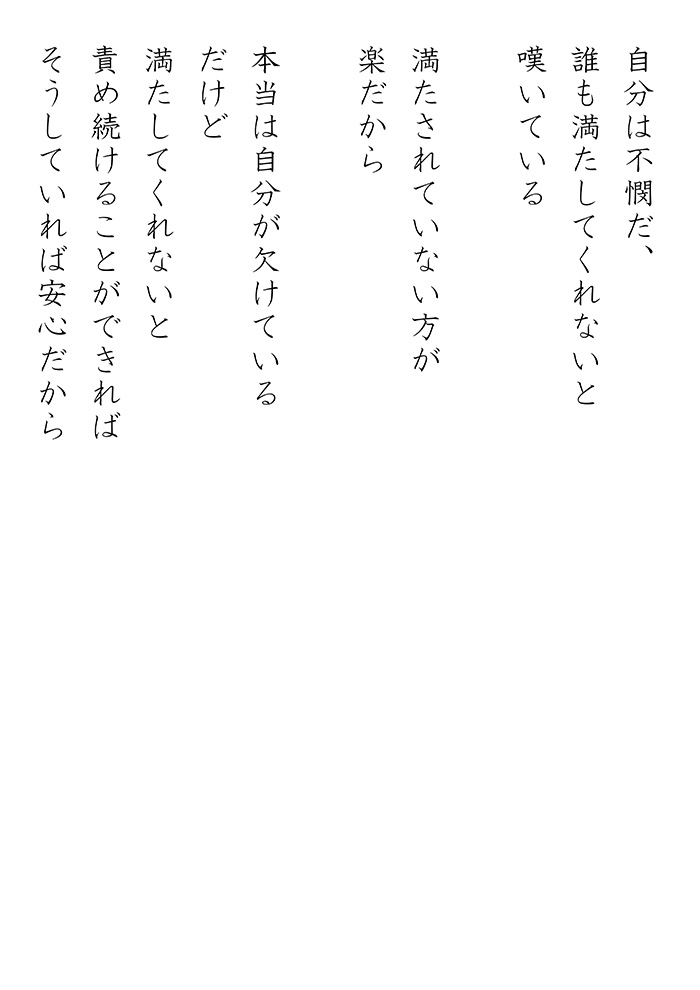 自分は不憫だ、
誰も満たしてくれないと
嘆いている
満たされていない方が
楽だから
本当は自分が欠けている
だけど
満たしてくれないと
責め続けることができれば
そうしていれば安心だから